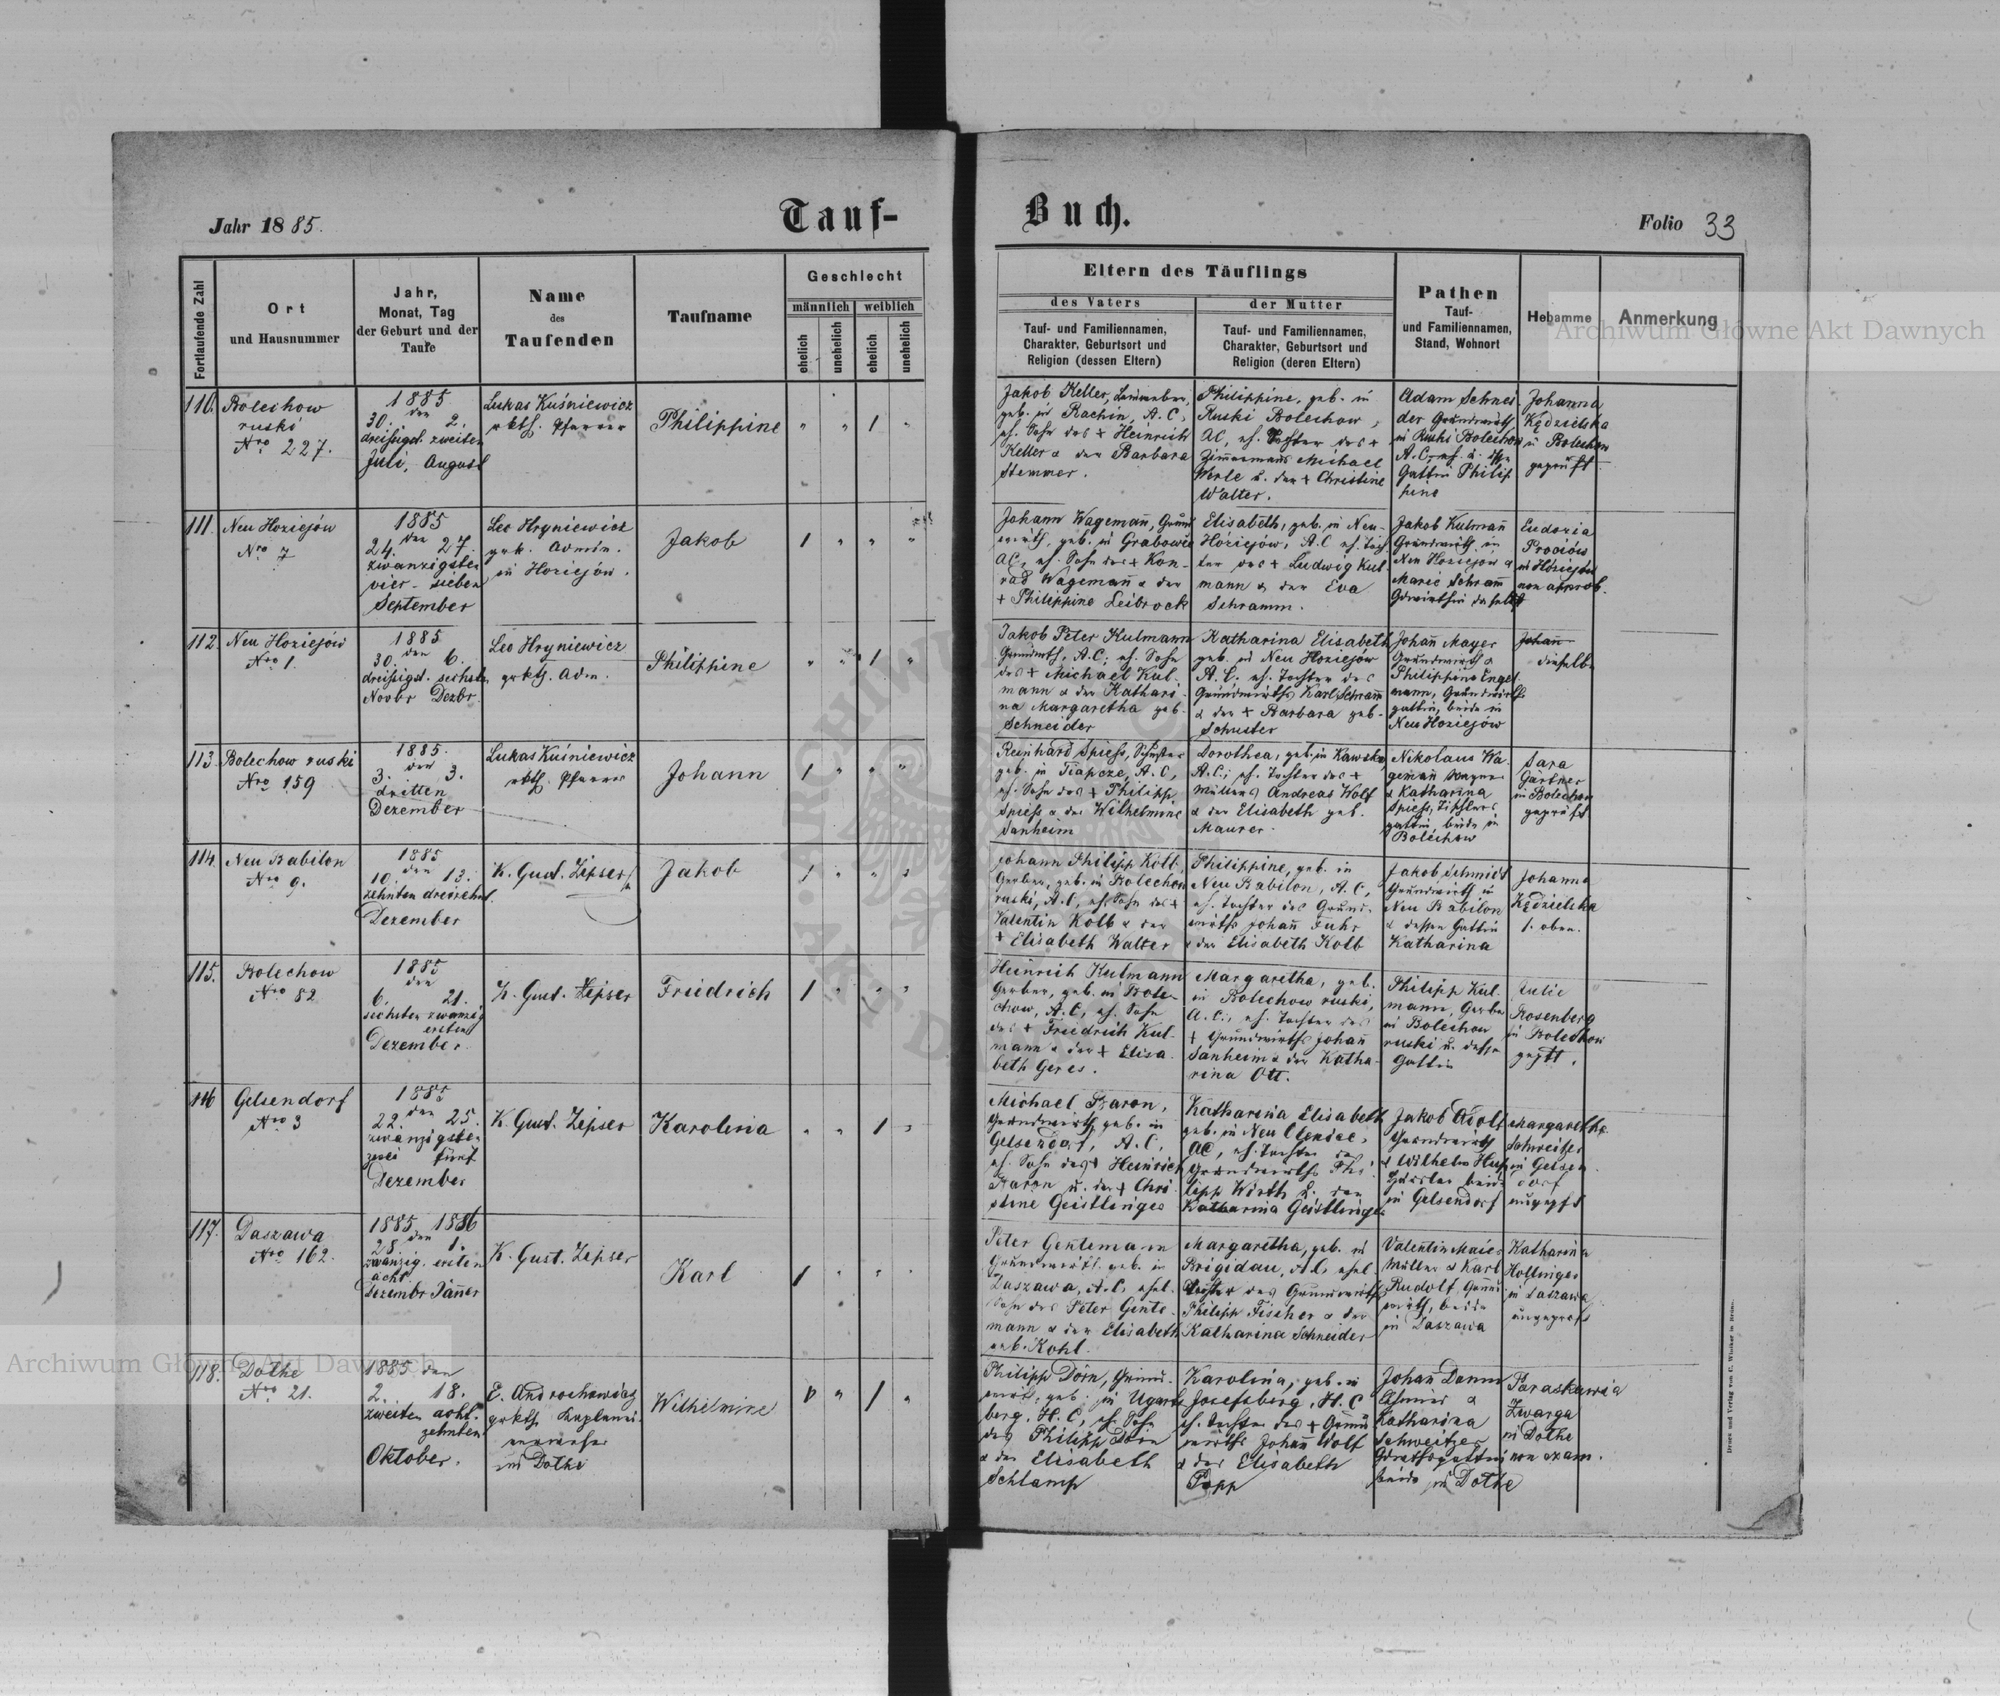 Jahr 1885.
Tauf-
Buch.
Folio 33
Fortlaufende Zahl
Ort
und Hausnummer
Jahr,
Monat, Tag
der Geburt und der
Taufe
Name
des
Taufenden
Taufname
Geschlecht
männlich
weiblich
ehelich
unehelich
ehelich
unehelich
Eltern des Täuflings
des Vaters
der Mutter
Tauf- und Familiennamen,
Charakter, Geburtsort und
Religion (dessen Eltern)
Tauf- und Familiennamen,
Charakter, Geburtsort und
Religion (deren Eltern)
Pathen
Tauf-
und Familiennamen,
Stand, Wohnort
Hebamme
Anmerkung
110.
Bolechow
ruski
Nro 227.
1885
den
30. 2.
dreißigst. zweiten
Juli, August
Lukas Kuśniewicz
rkth. Pfarrer
Philippine
1
Jakob Keller,
geb. in Rachin, A.C,
eh. Sohn des + Heinrich
Keller & der Barbara
Stemmer.
Philippine, geb. in
Ruski Bolechow,
AC, eh. Tochter des +
Zimmermans Michael
Werle u. der + Christine
Walter.
Adam Schnei-
der Grundwirth
in Ruski Bolechow
A.C,
Gattin Philip
pine
Johanna
Kędzielska
in Bolechow
geprüft
111.
Neu Hoziejów
Nro 7
1885
den
24. 27.
zwanzigsten
vier- sieben
September
Leo Hryniewicz
grk. Admin.
in Hoziejów.
Jakob
1
Johann Wagemañ, Grund
wirth, geb. in Grabowce
AC, eh. Sohn des + Kon-
rad Wagemañ & der
+ Philippine Leibrock
Elisabeth, geb. in Neu-
Hoziejów, A.C eh. Toch
ter des + Ludwig Kul
mann & der Eva
Schramm.
Jakob Kulmañ
Grundwirth in
Neu Hoziejów &
Marie Schram̄
Gdwirthin daselbst
Eudozia
Prociów
in Hoziejów
non approb.
112.
Neu Hoziejów
Nro 1.
1885
den
30. 6.
dreißigst. sechsten
Novbr Dezbr.
Leo Hryniewicz
grkth. Adm.
Philippine
1
Jakob Peter Kulmann
Grundwrth, A.C; eh. Sohn
des + Michael Kul-
mann & der Kathari-
na Margaretha geb-
Schneider
Katharina Elisabeth
geb. in Neu Hoziejów
A.C. eh. Tochter des
Grundwirths Karl Schram̄
& der + Barbara geb-
Schuster
Johañ Mayer
Grundwirth &
Philippine Engel
mann, Grundwirths
gattin, beide in
Neu Hoziejów
Johañ
dieselbe
113.
Bolechow ruski
Nro 159
1885.
den
3. 3.
dritten
Dezember
Lukas Kuśniewicz
rkth. Pfarrer
Johann
1
Reinhard Spieß, Schuster
geb. in Tiapcze, A.C,
eh. Sohn des + Philipp
Spieß & der Wilhelmine
Sanheim
Dorothea, geb. in Kawsko,
A.C; eh. Tochter des +
Müllers Andreas Wolf
& der Elisabeth geb.
Maurer.
Nikolaus Wa-
gemañ Wagner
& Katharina
Spieß, Tischlers
gattin, beide in
Bolechow
Sara
Gärtner
in Bolechow
geprüft
114.
Neu Babilon
Nro 9.
1885
den
10. 13.
zehnten dreizehnt.
Dezember
K. Gust. Zipser
Jakob
1
Johann Philipp Kolb,
Gerber, geb. in Bolechow
ruski, A.C, eh. Sohn des +
Valentin Kolb & der
+ Elisabeth Walter
Philippine, geb. in
Neu Babilon, A.C,
eh. Tochter des Grund-
wirths Johañ Fuhr
& der Elisabeth Kolb
Jakob Schmidt
Grundwirth in
Neu Babilon
& dessen Gattin
Katharina
Johanna
Kędzielska
s. oben.
115.
Bolechow
Nro 82
1885
den
6. 21.
sechsten zwanzig
ersten
Dezember
K. Gust. Zipser
Friedrich
1
Heinrich Kulmann
Gerber, geb. in Bole-
chow, A.C, eh. Sohn
des + Friedrich Kul
mann & der + Elisa-
beth Geres.
Margaretha, geb.
in Bolechow ruski,
A.C., eh. Tochter des
+ Grundwirths Johañ
Sanheim & der Katha-
rina Ott.
Philipp Kul-
mann, Gerber
in Bolechow
ruski u. dessen
Gattin
Julie
Rosenberg
in Bolechow
116
Gelsendorf
Nro 3
1885
den
22. 25.
zwanzigsten
zwei fünf
Dezember
K. Gust. Zipser
Karolina
1
Michael Baron,
Grundwirth, geb. in
Gelsendorf, A.C,
eh. Sohn des + Heinrich
Baron u. der + Chri
stine Geistlinger
Katharina Elisabeth
geb. in Neu Oleniec,
AC, eh. Tochter des
Grundwirths Phi
lipp Wirth & der
Katharina Geistlinger
Jakob Adolf
Grundwirth
& Wilhelm
beide
in Gelsendorf
Margaretha
Schweitzer
in Gelsen
dorf
ungeprft
117.
Daszawa
Nro 162.
1885 1886
den
28 1.
zwanzig. ersten
acht
Dezembr Jäñer
K. Gust. Zipser
Karl
1
Peter Gentemann
Grundwirth geb. in
Daszawa, A.C, ehel.
Sohn des Peter Gente-
mann & der Elisabeth
geb. Kohl.
Margaretha, geb. in
Brigidau, A.C, ehel.
Tochter des Grundwirths
Philipp Fischer & der
Katharina Schneider
Valentin Maier
Müller & Karl
Rudolf, Grund
wirth, beide
in Daszawa
Katharina
Hollinger
in Daszawa
ungeprft
118.
Dolhe
Nro 21.
1885 den
2. 18.
zweiten acht-
zehnten
Oktober.
E. Androchowicz
grkth. Kaplanei
verweser
in Dolhe
Wilhelmine
1
Philipp Dörn, Grund-
wirth, geb. in Ugarts
berg, H.C, eh. Sohn
des Philipp Dörn
& der Elisabeth
Schlamp
Karolina, geb. in
Josefsberg, H.C
eh. Tochter des + Grund
wirths Johañ Wolf
& der Elisabeth
Popp
Johan Damm
&
Katharina
Schweitzer
beide in Dolhe
Paraskawia
Zwarga
in Dolhe
non exam.
Druck und Verlag von C. Winiker in Brünn.
Archiwum Główne Akt Dawnych
Archiwum Główne Akt Dawnych